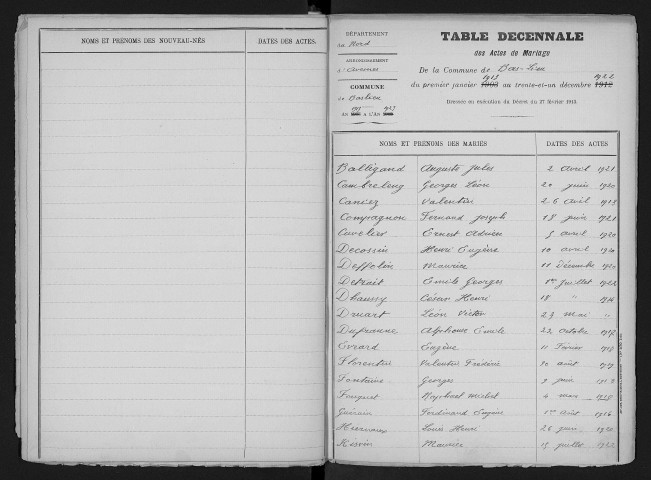 NOMS ET PRÉNOMS DES NOUVEAU-NÉS
DATES DES ACTES.
DÉPARTEMENT
du Nord
ARRONDISSEMENT
d'Avesnes
COMMUNE
de Baslieu
TABLE DECENNALE
des Actes de Mariage
De la Commune de Bas-Lieu
1913 1922
du premier janvier 1903 au trente-et-un décembre 1912
Dressée en exécution du Décret du 27 février 1913.
NOMS ET PRENOMS DES MARIÉS
DATES DES ACTES
Balligand Auguste Jules 2 Avril 1921
Cambreleng Georges Léon 20 juin 1920
Valentin 26 avril 1913
Compagnon Fernand Joseph 18 juin 1921
Cuvelier Ernest Adrien 5 avril 1920
Decossin Henri Eugène 10 avril 1920
Deffolin Maurice 11 Décembre 1920
Detrait Emile Georges 1er Juillet 1922
Dhaussy César Henri 18 " 1914
Druart Léon Victor 23 mai "
Dufranne Alphonse Emile 22 Octobre
Evrard Eugène 11 Février
Florentin Valentin Frédéric 20 août
Fontaine Georges 9 juin
Fouquet Raphael 4 mars
Guérain Ferdinand Eugène 1er Août 1916
Louis Henri 26 juin 1920
Maurice 15 juillet 1922